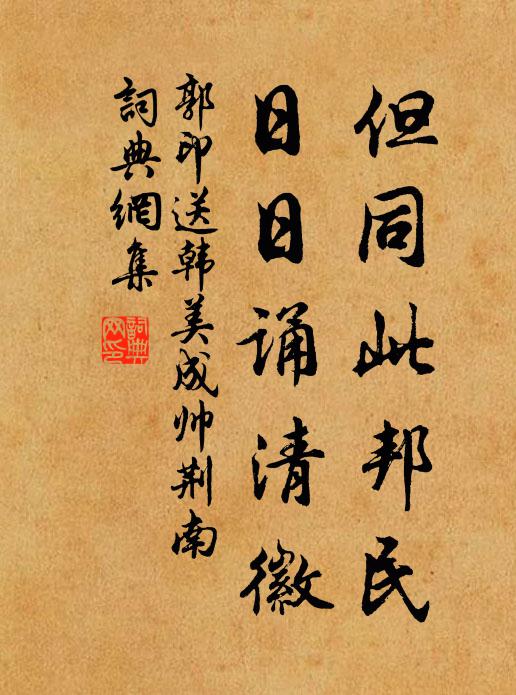 但同此邦民
日日诵清徽
郭印送韩美成帅荆南
詞典網集
詞典
网印